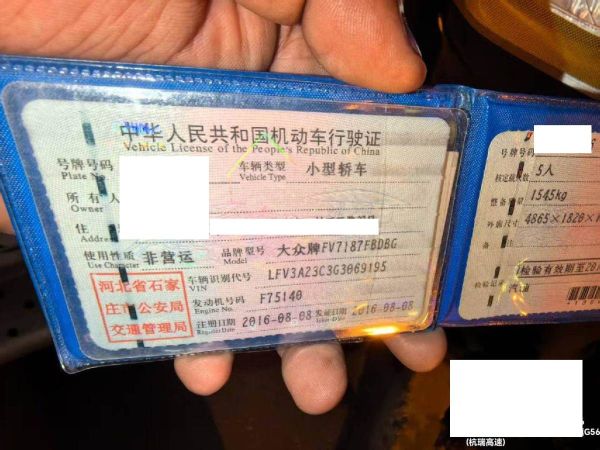 中华人民共和国机动车行驶证
Vehicle License of the People's Republic of China
号牌号码
Plate No.
车辆类型 小型轿车
Vehicle Type
所有人
Owner
住
Address
使用性质 非营运
Use Character
品牌型号 大众牌FV7187FBDBG
Model
河北省石家
庄市公安局
交通管理局
车辆识别代号 LFV3A23C3G3069195
VIN
发动机号码 F75140
Engine No.
注册日期 2016-08-08
Register Date
发证日期 2016-08-08
Issue Date
号牌号码
核定载人数 5人
整备质量 1545kg
外廓尺寸 4865×1820×1
备 注
检验有效期至20
检验记录
汽油
G56
(杭瑞高速)